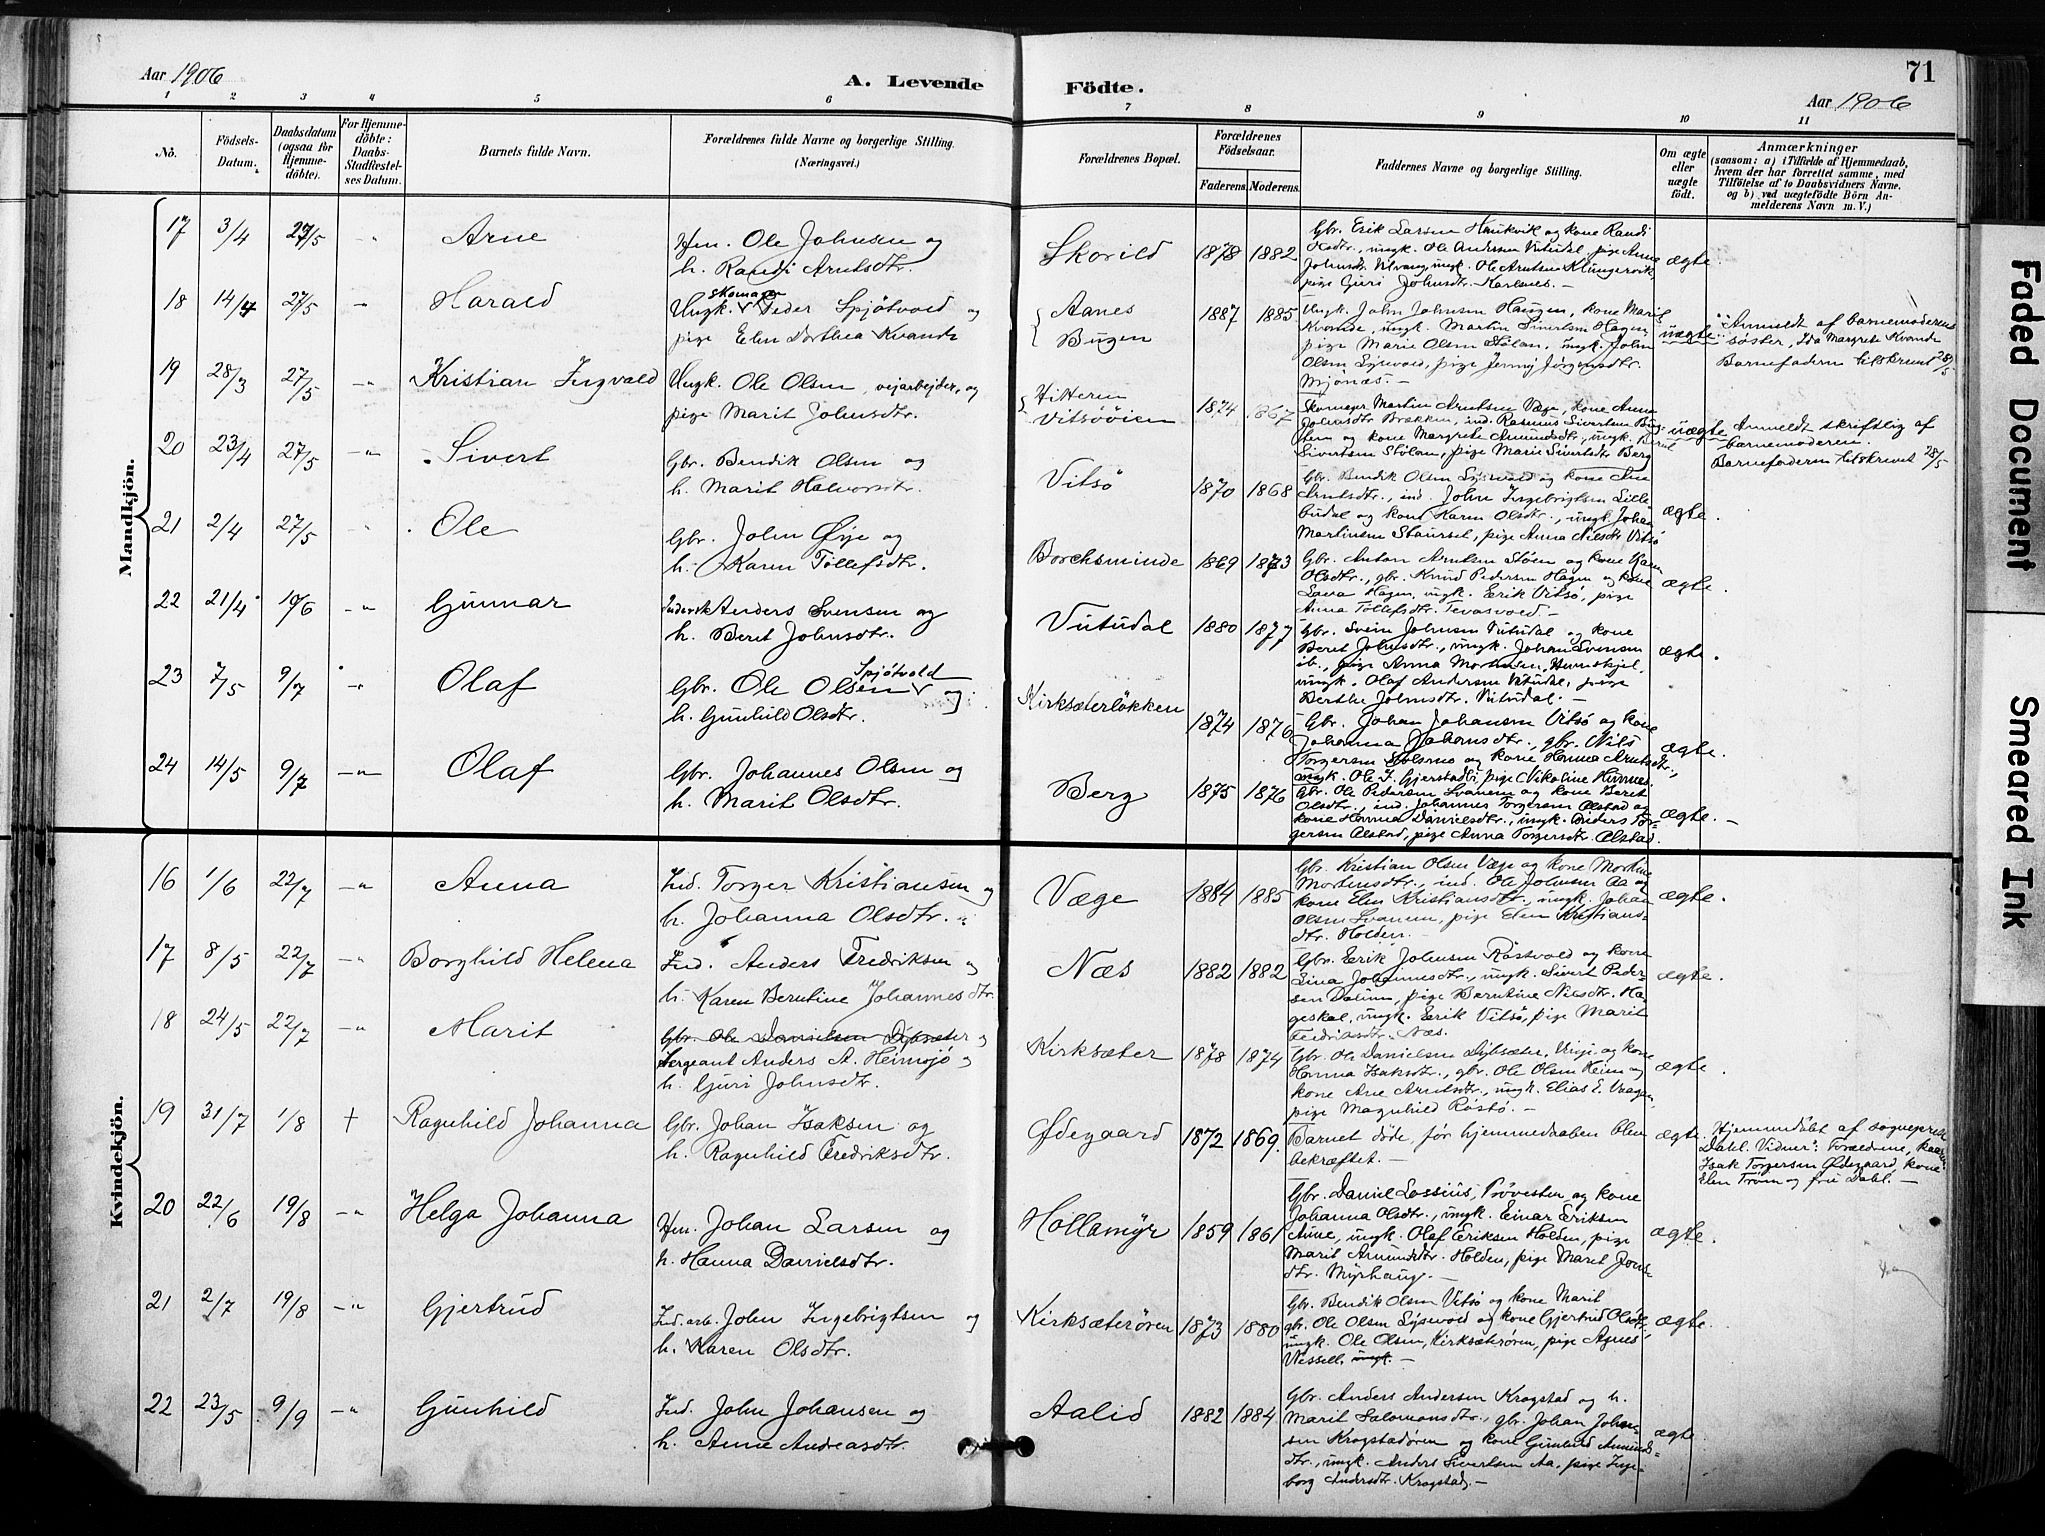 Aar 1906
A. Levende
Födte.
71
Aar 1906
1 2 3 4 5 6 7 8 9 10 11
No.
Födsels-
Datum.
Daabsdatum
(ogsaa for
Hjemme-
döbte).
For Hjemme-
döbte:
Daabs-
Stadfæstel-
ses Datum.
Barnets fulde Navn.
Forældrenes fulde Navne og borgerlige Stilling.
(Næringsvei.)
Forældrenes Bopæl.
Forældrenes
Födselsaar.
Faderens. Moderens.
Faddernes Navne og borgerlige Stilling.
Om ægte
eller
uægte
födt.
Anmærkninger
(saasom: a) i Tilfælde af Hjemmedaab,
hvem der har forrettet samme, med
Tilföielse af to Daabsvidners Navne.
og b) ved uægtefödte Börn An-
melderens Navn m. V.)
Mandkjön.
17 3/4 27/5 Arne
Hm. Ole Johnsen og
h. Randi Arntsdtr.
Skorild 1878 1882
Gbr. Erik Larsen Haukvik og kone Randi
Olsdtr., ungk. Ole Andersen Vutudal, pige Anne
Johnsdtr. ungk. Ole Arntsen Klungervik
pige Guri Johnsdtr. Karlsnes. –
ægte.
18 14/4 27/5 Harald
skomager
Ungk. Peder Spjötvold og
pige Elen Dorthea Kvande
Aanes
Bugen
1887 1885
Ungk. John Johnsen Haugen, kone Marit
Kvande, ungk. Martin Sivertsen Hagen
pige Marie Olsen Stölan, ungk. John
Olsen Lysvold, pige Jenny Jörgensdtr.
Mjönæs. –
uægte
Anmeldt af barnemoderens
söster, Ida Margrete Kvande
Barnefaderen tilskrevet 28/5
19 28/3 27/5 Kristian Ingvald
Ungk. Ole Olsen, veiarbejder, og
pige Marit Johnsdtr.
Hitteren
Vitsööien
1874 1867
Skomager Martin Arntsen Væge, kone Anne
Johnsdtr. Brækken, ind. Rasmus Sivertsen
og kone Margrete Amundsdtr., ungk.
Sivertsen Stölan, pige Marie Sivertsdtr. Berg
uægte
Anmeldt skriftlig af
barnemoderen.
Barnefaderen tilskrevet 28/5
20 23/4 27/5 Sivert
Gbr. Bendik Olsen og
h. Marit Halvorsdtr.
Vitsö 1870 1868
Gbr. Bendik Olsen Lysvold og kone
Arntsdtr., ind. John Ingebrigtsen Lille-
budal og kone Karen Olsdtr., ungk. Johan
Martinsen Staursel, pige Anna Nilsdtr. Vitsö
ægte.
21 2/4 27/5 Ole
Gbr. John Öye og
h. Karen Tollefsdtr.
Borchsminde 1869 1873
Gbr. Anton Arntsen Stöen og kone Karen
Olsdtr., gbr. Knud Pedersen Hagen og kone
Lava Hagen, ungk. Erik Vitsö, pige
Anna Tollefsdtr. Tevasvold –
ægte
22 21/4 10/6 Gunnar
Anders Svensen og
h. Beret Johnsdtr.
Vutudal 1880 1877
Gbr. Svein Johnsen Vutudal og kone
Beret Johnsdtr., ungk. Johan Svensen
ib., pige Anna Mortensen, Hundskjel,
ungk. Olaf Andersen Vutudal, pige
Berthe Johnsdtr. Vutudal. –
ægte.
23 7/5 9/7 Olaf
Spjötvold
Gbr. Ole Olsen og
h. Gunhild Olsdtr.
Kirksæterlökken 1874 1876
Gbr. Johan Johansen Vitsö og kone
Johanna Johansdtr., gbr. Nils
Torgersen Solsmo og kone Hanna Arntsdtr.,
ungk. Ole J. Gjerstadli, pige Nikoline
ægte.
24 14/5 9/7 Olaf
Gbr. Johannes Olsen og
h. Marit Olsdtr.
Berg 1875 1876
Gbr. Ole Pedersen Svanem og kone Beret
Olsdtr., ind. Johannes Torgersen Ölstad og
kone Hanna Danielsdtr., ungk. Anders Tor-
gersen Ölstad, pige Anna Torgersdtr. Ölstad.
ægte. –
Kvindekjön.
16 1/6 22/7 Anna
Ind. Torger Kristiansen og
h. Johanna Olsdtr.
Væge 1884 1885
Gbr. Kristian Olsen Væge og kone Martine
Mortensdtr., ind. Ole Johnsen Aa og
kone Elen Kristiansdtr., ungk. Johan
Olsen Svanem, pige Elen Kristians-
dtr. Holden.
ægte.
17 8/5 22/7 Borghild Helena
Ind. Anders Fredriksen og
h. Karen Berntine Johannesdtr.
Næs 1882 1882
Gbr. Erik Johnsen Röstvold og kone
Lina Johannesdtr., ungk. Sivert Peder-
sen Dalum, pige Berntine Nilsdtr. Ha-
geskal, ungk. Erik Vitsö, pige Marit
Fredriksdtr. Næs.
ægte.
18 24/5 22/7 Marit
Gbr. Ole Danielsen Dybsæter og
Sergeant Anders A. Heimsjö og
h. Guri Johnsdtr.
Kirksæter 1878 1874
Gbr. Ole Danielsen Dybsæter, Vinje og kone
Hanna Isaksdtr., gbr. Ole Olsen Heim og
kone Ane Arntsdtr., ungk. Elias E. Vaagen,
pige Magnhild Röstö. –
ægte
19 31/7 1/8 + Ragnhild Johanna
Gbr. Johan Isaksen og
h. Ragnhild Fredriksdtr.
Ödegaard 1872 1869.
Barnet döde, för hjemmedaaben blev
bekræftet. –
ægte.
Hjemmedöbt af sogneprest
Dahl. Vidner: Forældrene,
Isak Torgersen Ödegaard, kone
Elen Tröm og fru Dahl. –
20 22/6 19/8 Helga Johanna
Hm. Johan Larsen og
h. Hanna Danielsdtr.
Hollamyr 1859 1861
Gbr. Daniel Lossius, Prövesten, og kone
Johanna Olsdtr., ungk. Einar Eriksen
Aune, ungk. Olaf Eriksen Holden, pige
Marit Amundsdtr. Holden, pige Maret Jons-
dtr. Myrhaug. –
ægte.
21 2/7 19/8 Gjertrud
Ind. arb. John Ingebrigtsen og
h. Karen Olsdtr.
Kirksæterören 1873 1880
Gbr. Bendik Olsen Vitsö og kone Marit
gbr. Ole Olsen Lysvold og kone Gjertrud Olsdtr.,
ungk. Ole Olsen, Kirksæterören, pige Agnes
Wessell, ungk. –
ægte.
22 23/5 9/9 Gunhild
Ind. John Johansen og
h. Anne Andreasdtr.
Aalid 1882 1884
Gbr. Anders Andersen Krogstad og h.
Marit Salomonsdtr., gbr. Johan Johan-
sen Krogstadören og kone Gunhild Amunds-
dtr., ungk. Anders Sivertsen Aa, pige Inge-
borg Andersdtr. Krogstad. –
ægte
Faded Document
Smeared Ink